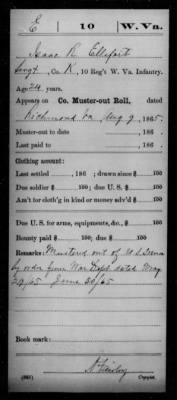 E | 10 | W. Va.
Isaac R. Ellifort
Sergt, Co. K, 10 Reg't W. Va. Infantry.
Age 24 years.
Appears on Co. Muster-out Roll, dated
Richmond Va, Aug 9, 1865.
Muster-out to date , 186 .
Last paid to , 186 .
Clothing account:
Last settled , 186 ; drawn since $ 100
Due soldier $ 100; due U. S. $ 100
Am't for cloth'g in kind or money adv'd $ 100
Due U. S. for arms, equipments, &c., $ 100
Bounty paid $ 100; due $ 100
Remarks: Mustered out of U.S. Service
by order from War Dept dated May
29/65 June 30/65
Book mark:
(861) Copyist.